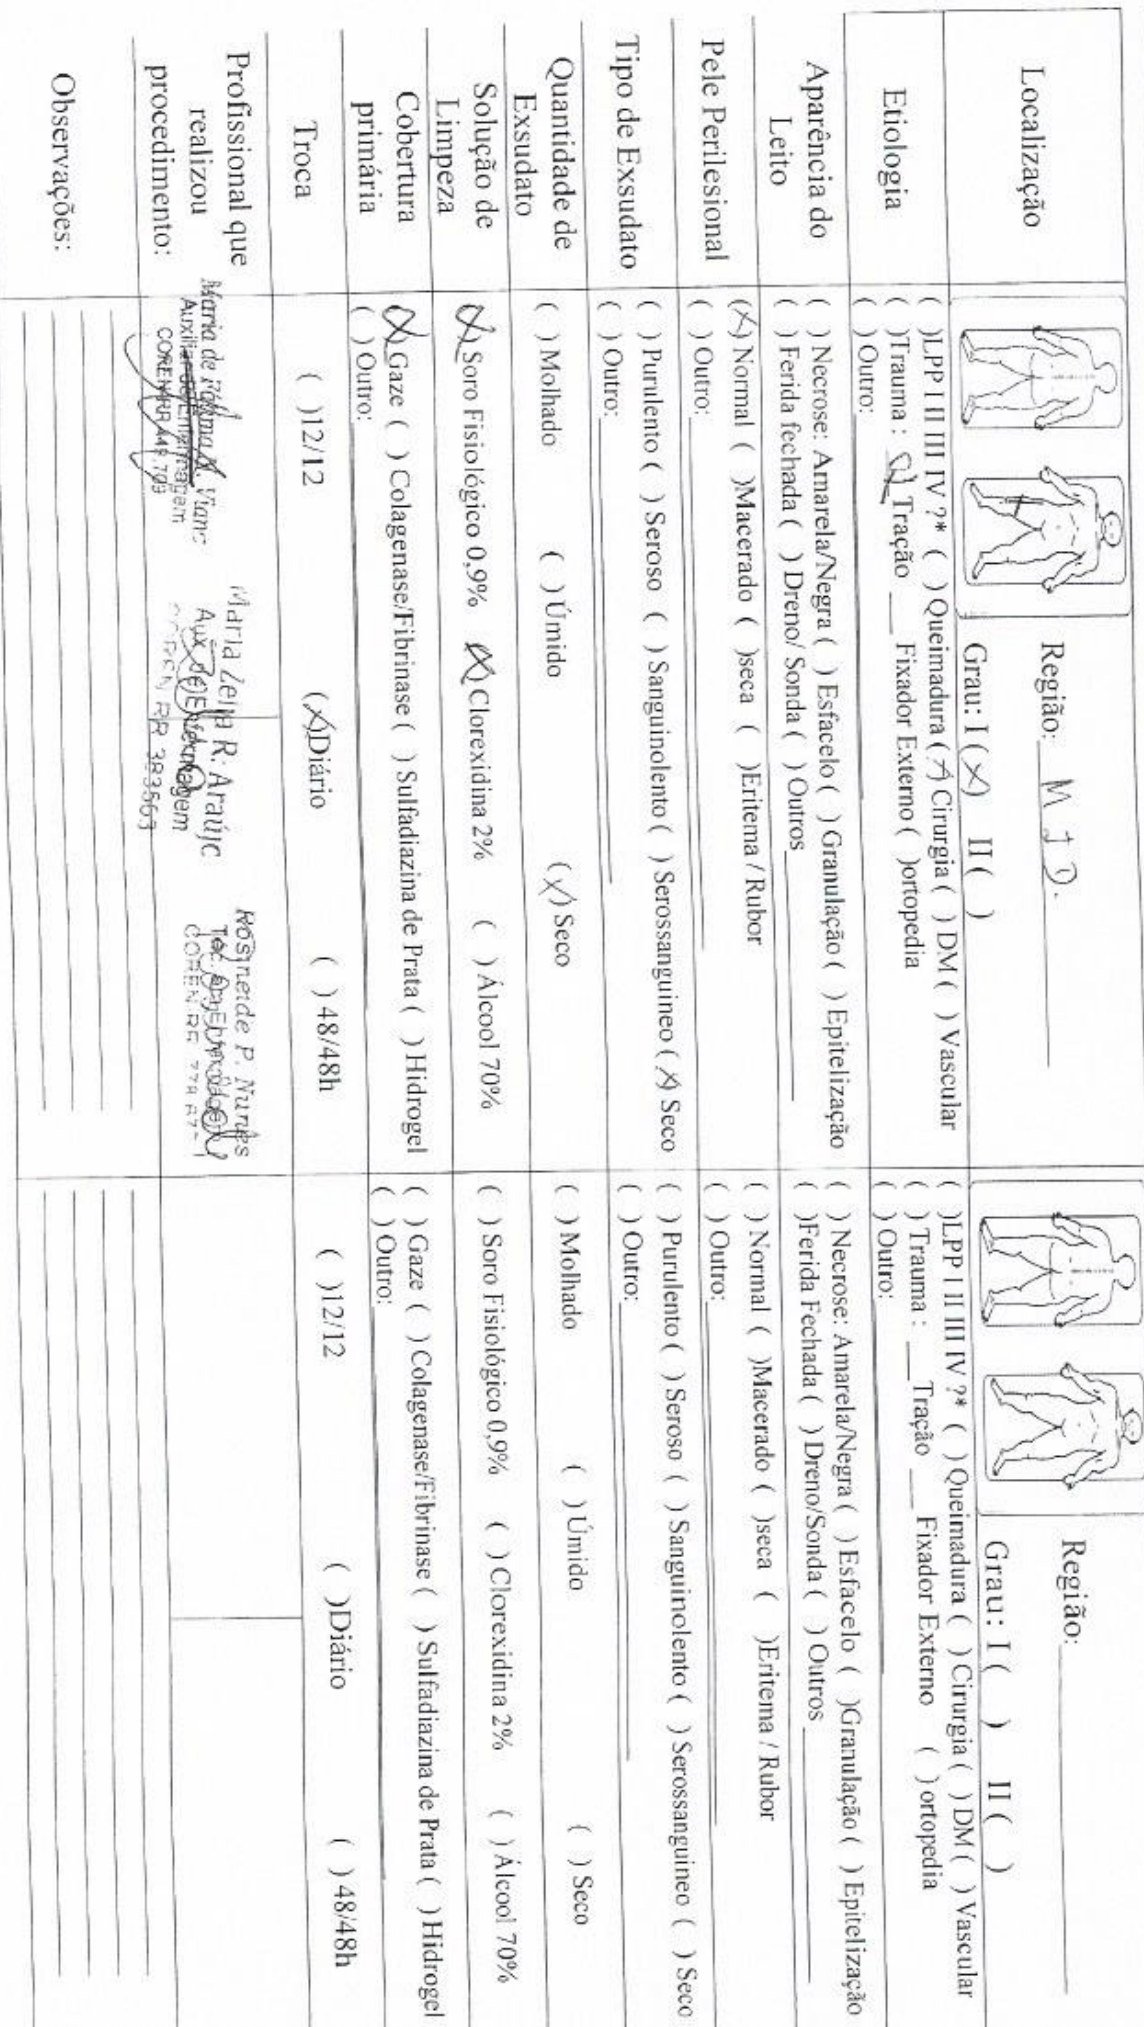 Localização
Região: M I D.
Grau: I (X) II ( )
Região:
Grau: I ( ) II ( )
Etiologia
( )LPP I II III IV ?* ( ) Queimadura (X) Cirurgia ( ) DM ( ) Vascular
( )Trauma : (X) Tração ___ Fixador Externo ( )ortopedia
( ) Outro:
( )LPP I II III IV ?* ( ) Queimadura ( ) Cirurgia ( ) DM ( ) Vascular
( ) Trauma : ___Tração ___ Fixador Externo ( ) ortopedia
( ) Outro:
Aparência do
Leito
( ) Necrose: Amarela/Negra ( ) Esfacelo ( ) Granulação ( ) Epitelização
( ) Ferida fechada ( ) Dreno/ Sonda ( ) Outros
( ) Necrose: Amarela/Negra ( ) Esfacelo ( )Granulação ( ) Epitelização
( )Ferida Fechada ( ) Dreno/Sonda ( ) Outros
Pele Perilesional
(X) Normal ( )Macerado ( )seca ( )Eritema / Rubor
( ) Outro:
( ) Normal ( )Macerado ( )seca ( )Eritema / Rubor
( ) Outro:
Tipo de Exsudato
( ) Purulento ( ) Seroso ( ) Sanguinolento ( ) Serossanguineo (X) Seco
( ) Outro:
( ) Purulento ( ) Seroso ( ) Sanguinolento ( ) Serossanguineo ( ) Seco
( ) Outro:
Quantidade de
Exsudato
( ) Molhado ( ) Úmido (X) Seco
( ) Molhado ( ) Úmido ( ) Seco
Solução de
Limpeza
(X) Soro Fisiológico 0,9% (X) Clorexidina 2% ( ) Álcool 70%
( ) Soro Fisiológico 0,9% ( ) Clorexidina 2% ( ) Álcool 70%
Cobertura
primária
(X) Gaze ( ) Colagenase/Fibrinase ( ) Sulfadiazina de Prata ( ) Hidrogel
( ) Outro:
( ) Gaze ( )Colagenase/Fibrinase ( ) Sulfadiazina de Prata ( ) Hidrogel
( ) Outro:
Troca
( )12/12 (X)Diário ( ) 48/48h
( )12/12 ( )Diário ( ) 48/48h
Profissional que
realizou
procedimento:
Maria de
Auxiliar de Enfermagem
COREN-RR 449.703
Maria Zelia R. Araújo
Aux. de Enfermagem
COREN RR 383563
Rosineide P. Nunes
Téc. em Enfermagem
COREN RR
Observações: